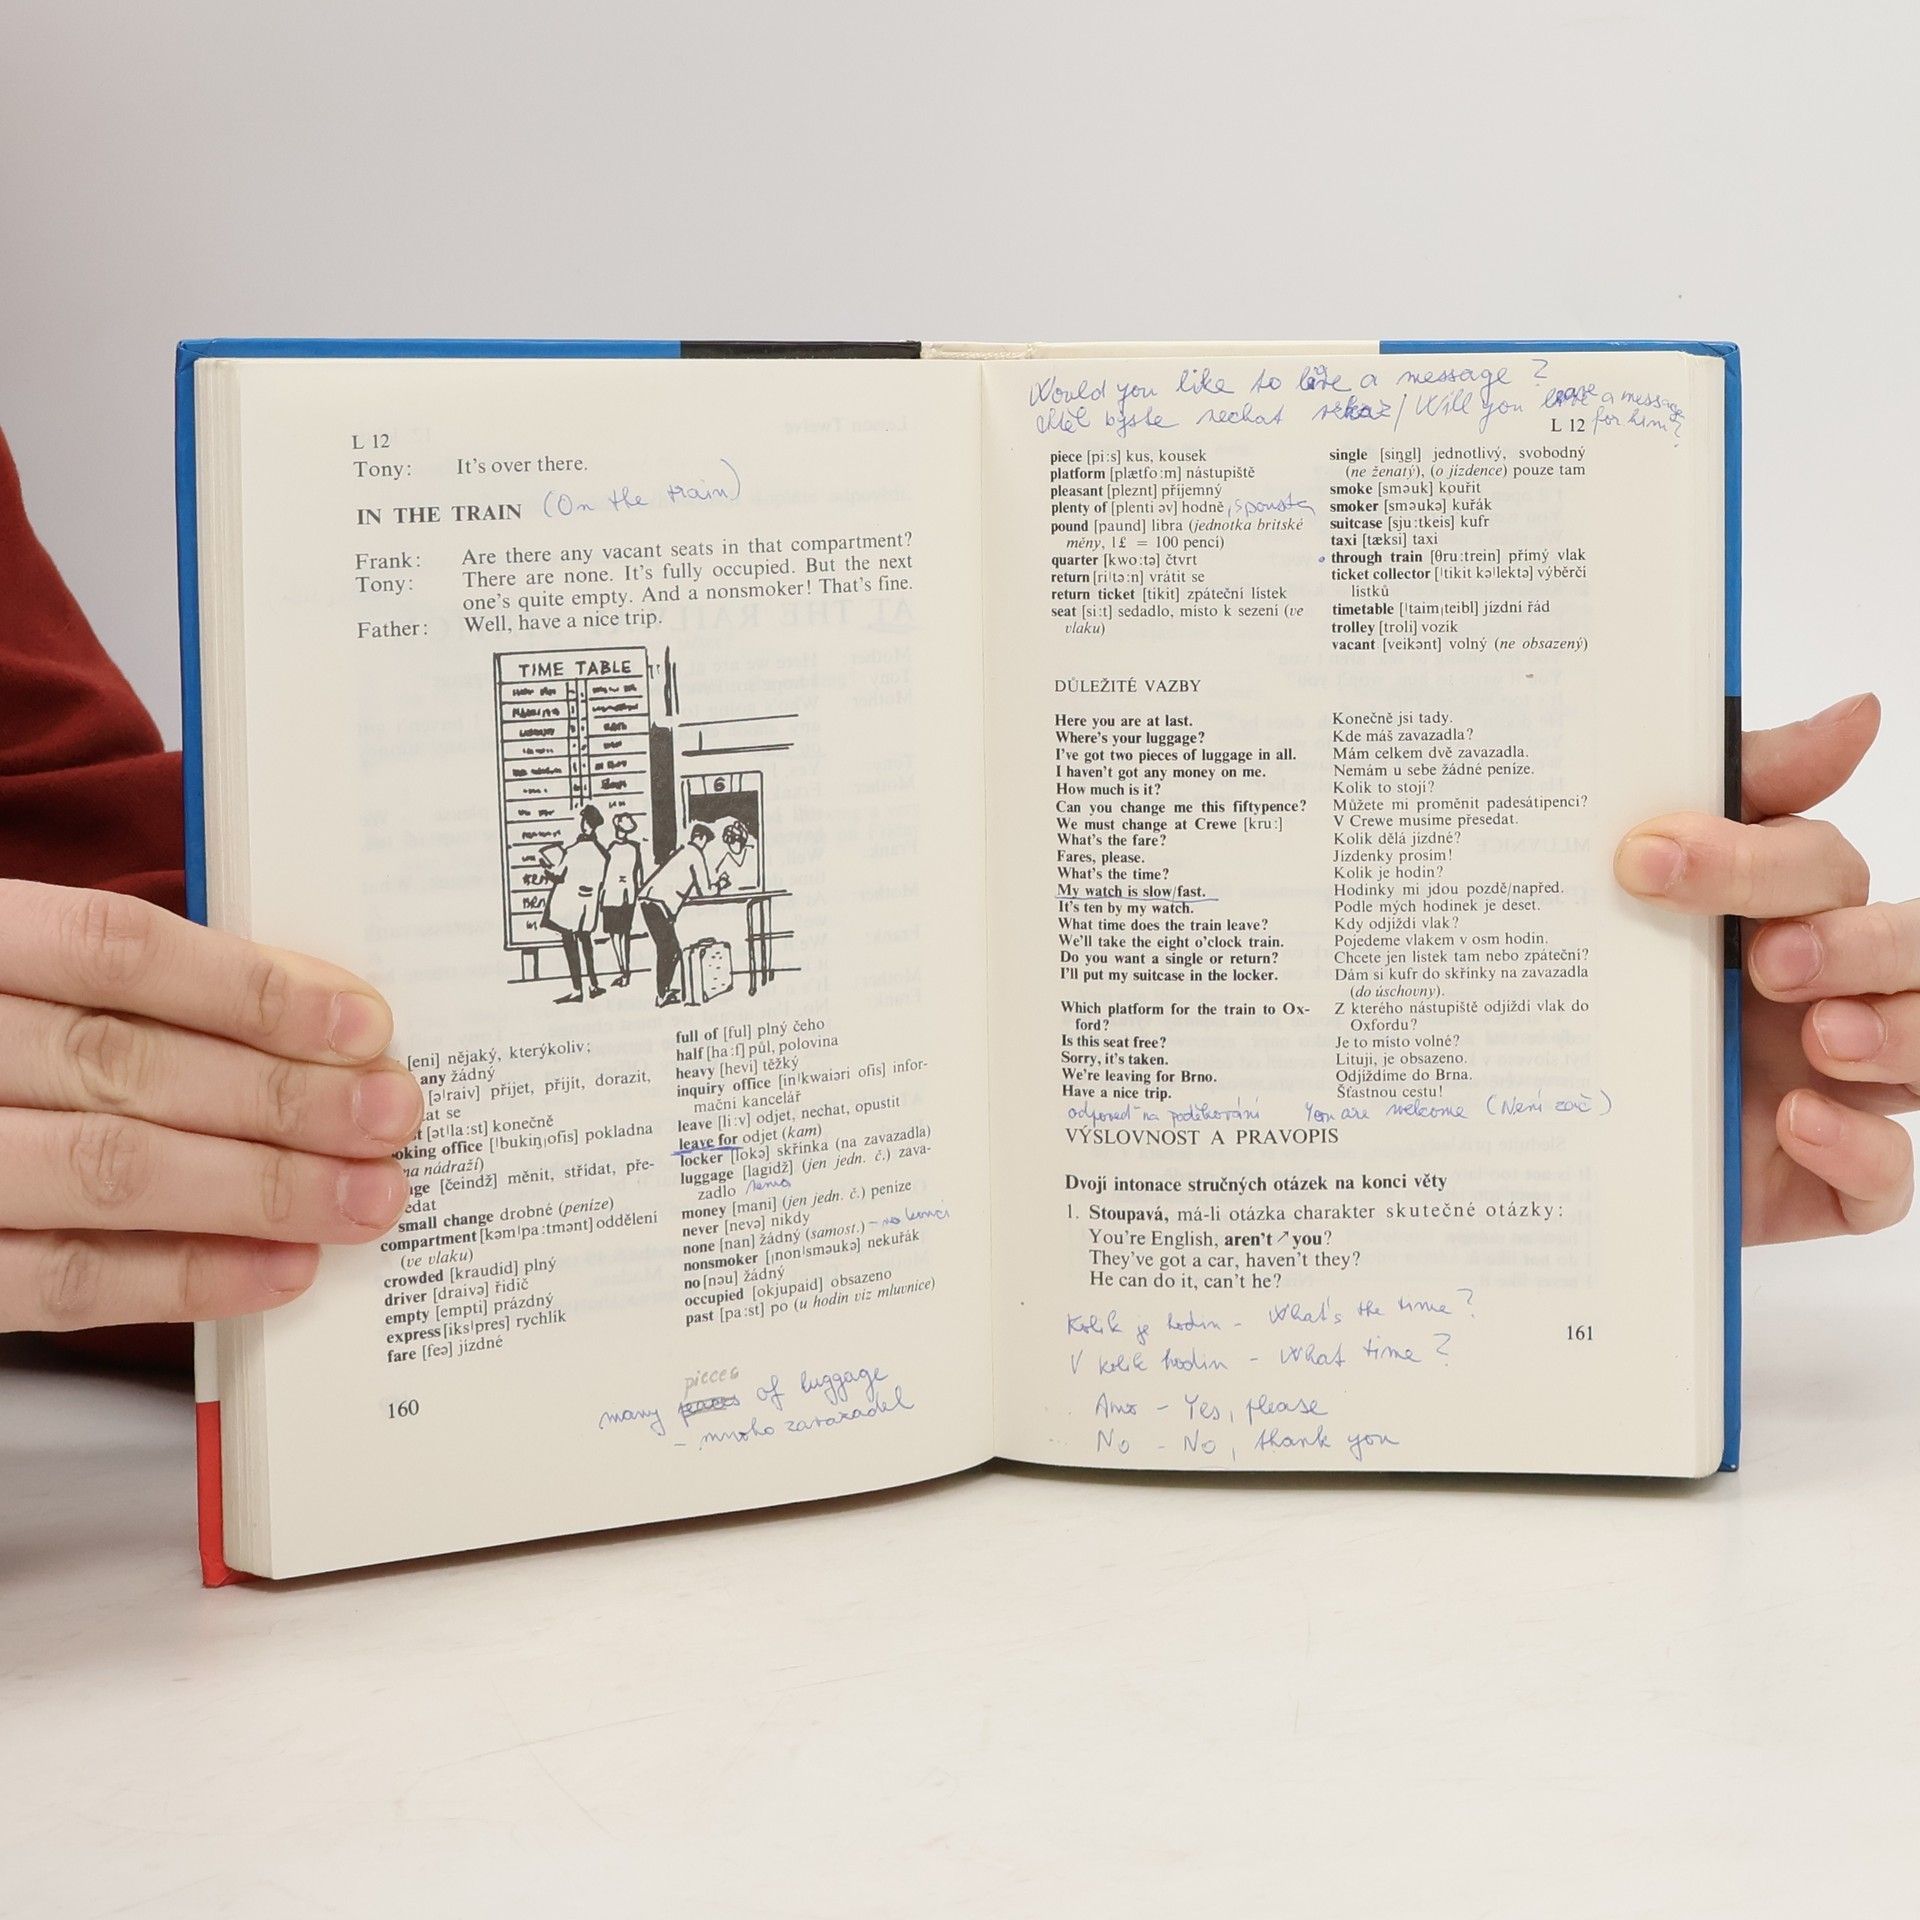 L 12
Tony: It's over there.
IN THE TRAIN (On the train)
Frank: Are there any vacant seats in that compartment?
Tony: There are none. It's fully occupied. But the next
one's quite empty. And a nonsmoker! That's fine.
Father: Well, have a nice trip.
TIME TABLE
6
[eni] nějaký, kterýkoliv;
any žádný
[əˈraiv] přijet, přijít, dorazit,
at se
[ətˈla:st] konečně
oking office [ˈbukiŋˌofis] pokladna
na nádraží)
ge [čeindž] měnit, střídat, pře-
edat
small change drobné (peníze)
compartment [kəmˈpa:tmənt] oddělení
(ve vlaku)
crowded [kraudid] plný
driver [draivə] řidič
empty [empti] prázdný
express [iksˈpres] rychlík
fare [feə] jízdné
full of [ful] plný čeho
half [ha:f] půl, polovina
heavy [hevi] těžký
inquiry office [inˈkwaiəri ofis] infor-
mační kancelář
leave [li:v] odjet, nechat, opustit
leave for odjet (kam)
locker [lokə] skříňka (na zavazadla)
luggage [lagidž] (jen jedn. č.) zava-
zadlo
money [mani] (jen jedn. č.) peníze
never [nevə] nikdy
none [nan] žádný (samost.) – na konci
nonsmoker [ˌnonˈsməukə] nekuřák
no [nəu] žádný
occupied [okjupaid] obsazeno
past [pa:st] po (u hodin viz mluvnice)
pieces
many of luggage
- mnoho zavazadel
160
Would you like to leave a message?
Chtěl byste nechat vzkaz / Will you leave a message
for him?
L 12
piece [pi:s] kus, kousek
platform [plætfo:m] nástupiště
pleasant [pleznt] příjemný
plenty of [plenti əv] hodně, spousta
pound [paund] libra (jednotka britské
měny, 1£ = 100 pencí)
quarter [kwo:tə] čtvrt
return [riˈtə:n] vrátit se
return ticket [tikit] zpáteční lístek
seat [si:t] sedadlo, místo k sezení (ve
vlaku)
single [siŋgl] jednotlivý, svobodný
(ne ženatý), (o jízdence) pouze tam
smoke [sməuk] kouřit
smoker [sməukə] kuřák
suitcase [sju:tkeis] kufr
taxi [tæksi] taxi
through train [θru:trein] přímý vlak
ticket collector [ˈtikit kəˈlektə] výběrčí
lístků
timetable [ˈtaimˌteibl] jízdní řád
trolley [troli] vozík
vacant [veikənt] volný (ne obsazený)
DŮLEŽITÉ VAZBY
Here you are at last. Konečně jsi tady.
Where's your luggage? Kde máš zavazadla?
I've got two pieces of luggage in all. Mám celkem dvě zavazadla.
I haven't got any money on me. Nemám u sebe žádné peníze.
How much is it? Kolik to stojí?
Can you change me this fiftypence? Můžete mi proměnit padesátipenci?
We must change at Crewe [kru:] V Crewe musíme přesedat.
What's the fare? Kolik dělá jízdné?
Fares, please. Jízdenky prosím!
What's the time? Kolik je hodin?
My watch is slow/fast. Hodinky mi jdou pozdě/napřed.
It's ten by my watch. Podle mých hodinek je deset.
What time does the train leave? Kdy odjíždí vlak?
We'll take the eight o'clock train. Pojedeme vlakem v osm hodin.
Do you want a single or return? Chcete jen lístek tam nebo zpáteční?
I'll put my suitcase in the locker. Dám si kufr do skříňky na zavazadla
(do úschovny).
Which platform for the train to Ox- Z kterého nástupiště odjíždí vlak do
ford? Oxfordu?
Is this seat free? Je to místo volné?
Sorry, it's taken. Lituji, je obsazeno.
We're leaving for Brno. Odjíždíme do Brna.
Have a nice trip. Šťastnou cestu!
odpověď na poděkování You are welcome (Není zač)
VÝSLOVNOST A PRAVOPIS
Dvojí intonace stručných otázek na konci věty
1. Stoupavá, má-li otázka charakter skutečné otázky:
You're English, aren't ↗ you?
They've got a car, haven't they?
He can do it, can't he?
Kolik je hodin - What's the time?
V kolik hodin - What time?
161
Ano - Yes, please
No - No, thank you